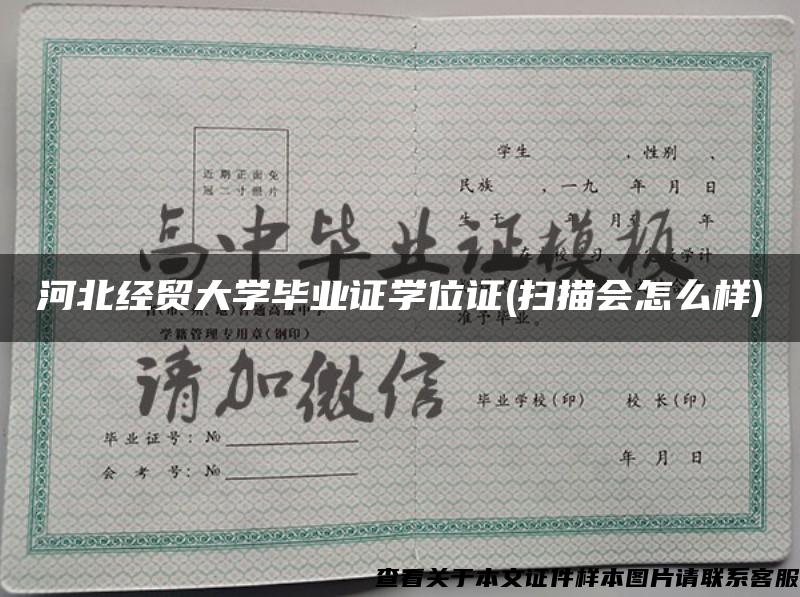 学生 ，性别 、
近期正面免
冠二寸照片
民族 ，一九 年 月 日
高中毕业证模板
河北经贸大学毕业证学位证(扫描会怎么样)
准予毕业。
学籍管理专用章(钢印)
请加微信
毕业学校(印) 校长(印)
毕业证号：№
年 月 日
会考号：№
查看关于本文证件样本图片请联系客服